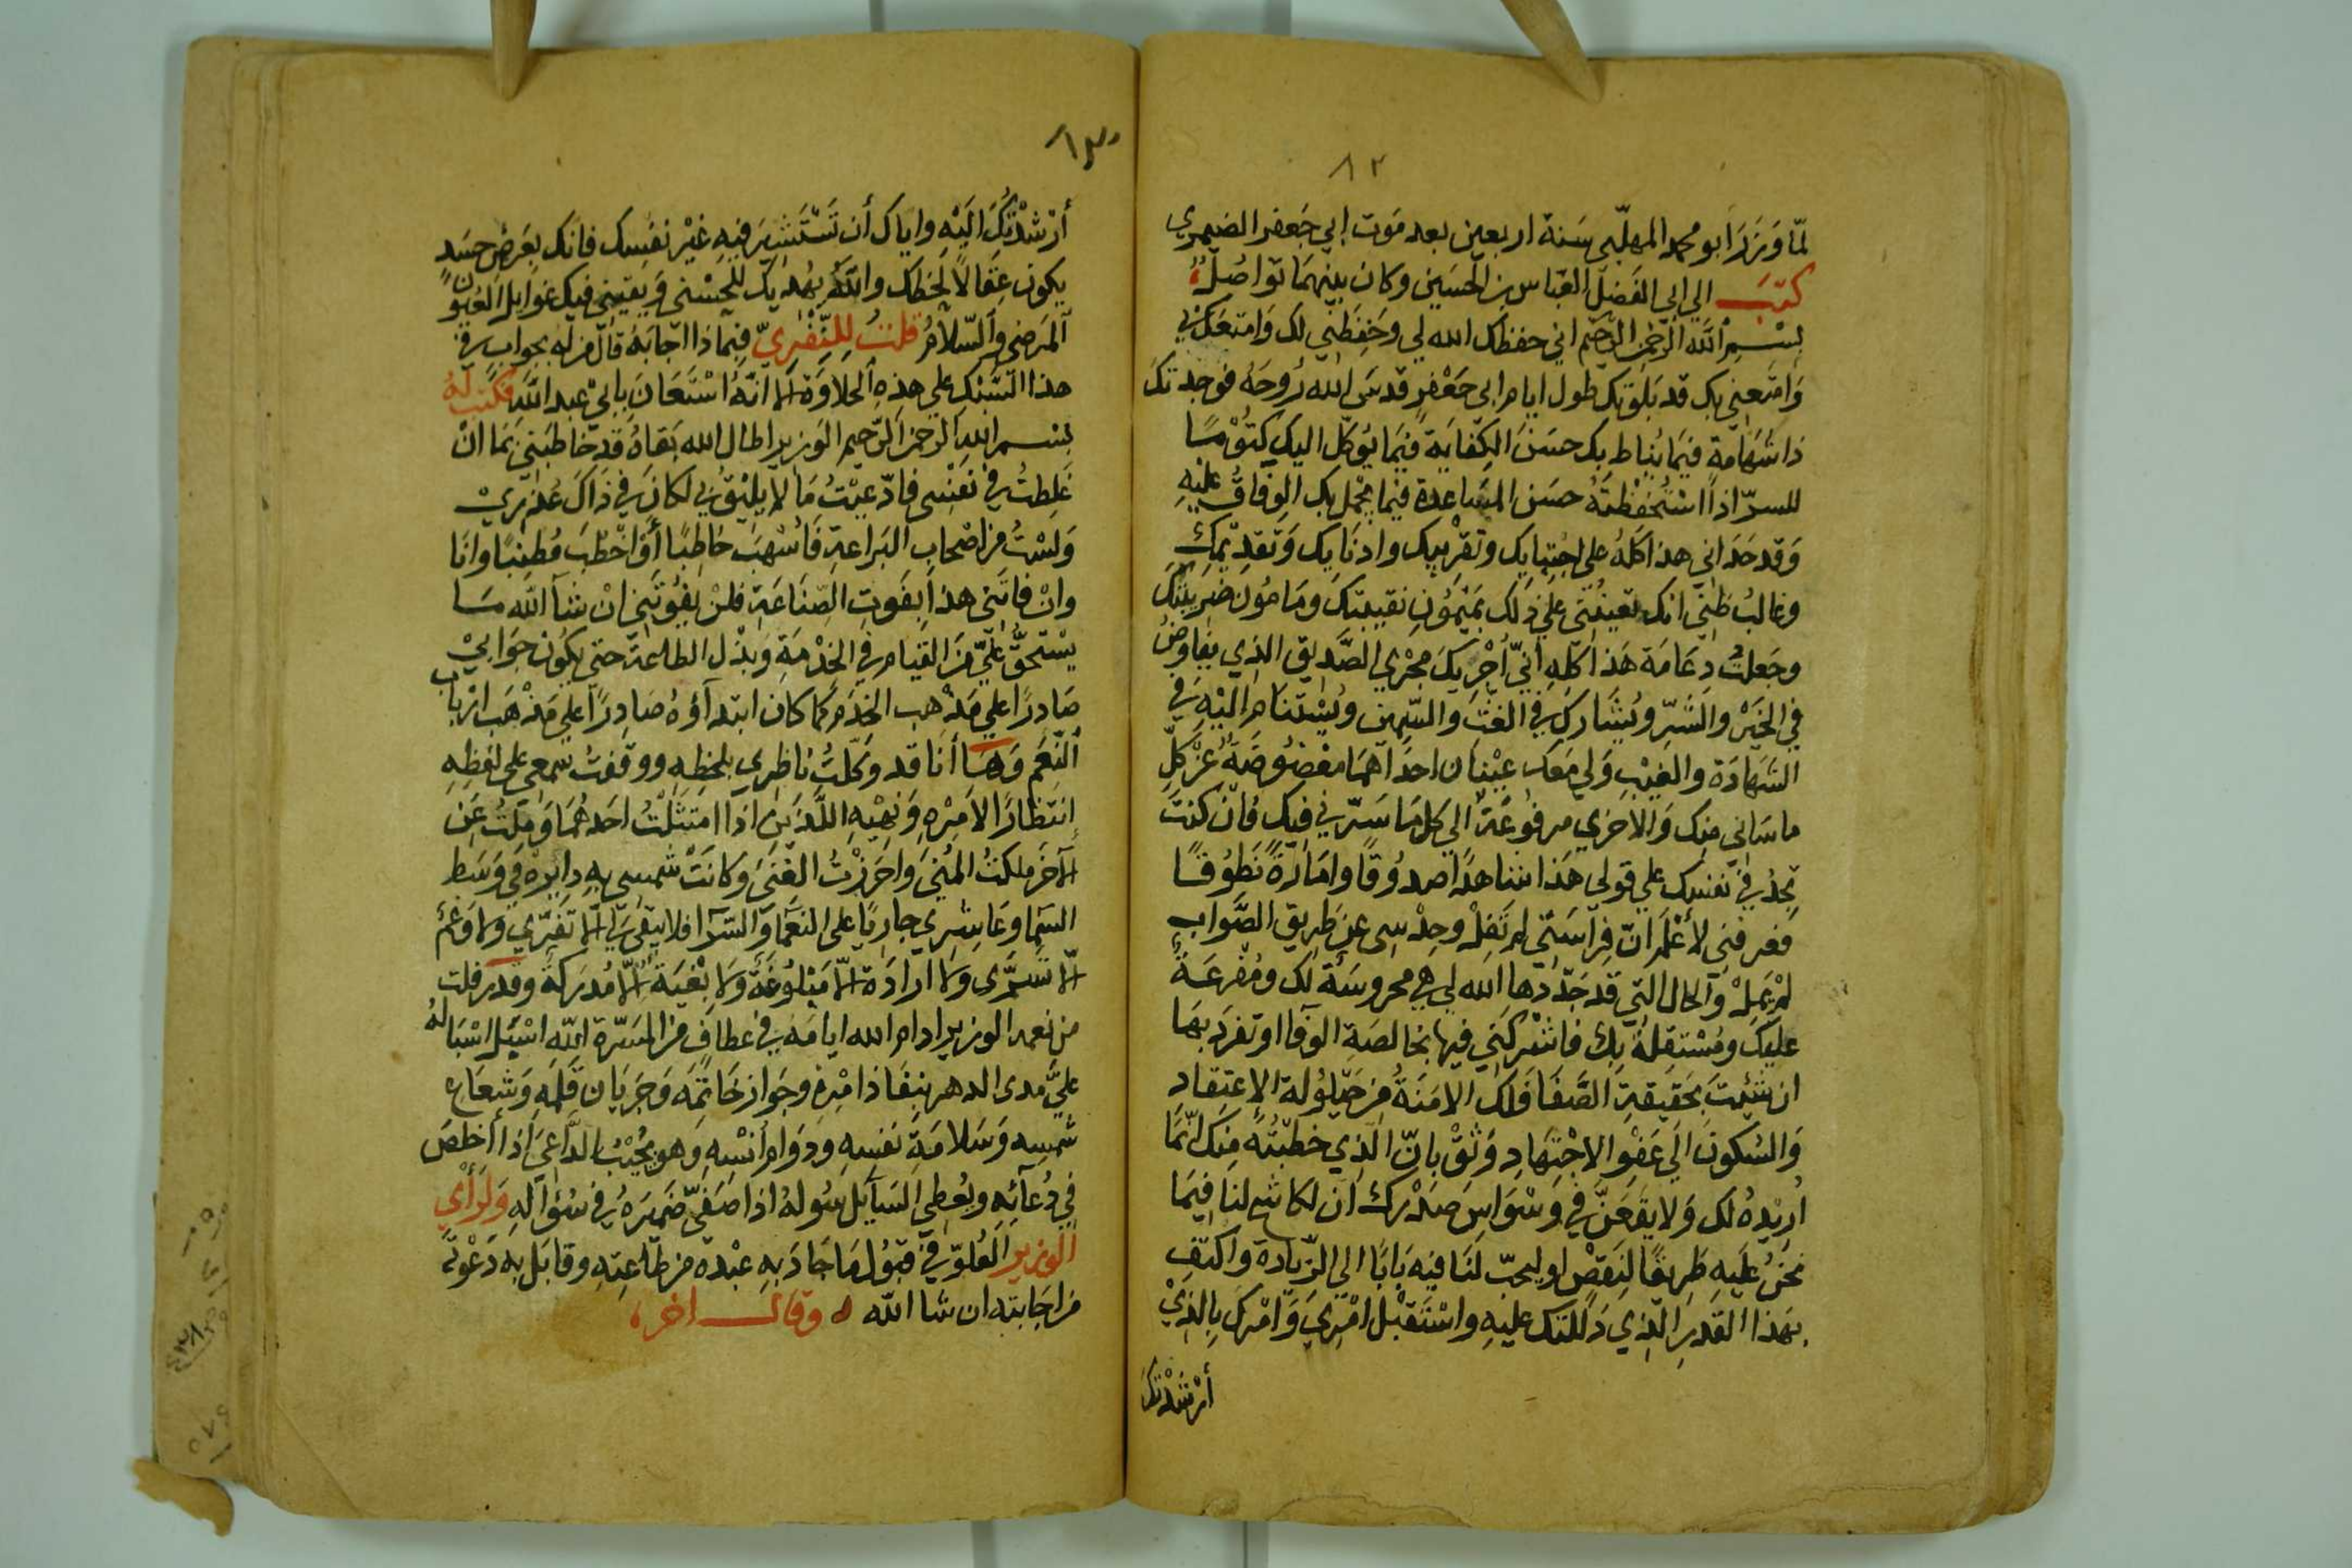 ٨٢
لمّا وَزَرَ ابو محمد المهلّبي سَنة اربعين بعد مَوت ابي جَعفر الضيمري
كتبَ الي ابي الفَضل العَبّاس بن الحُسَين وكان بينهمَا تواصُلٌ
بسْـم اللَّه الرّحمن الرّحيم اني حفظك الله لي وحَفِظَني لك وَامتعَك بي
وَامتَعني بك قد بَلَوتك طول ايام ابي جَعْفرٍ قدسَ الله رُوحَهُ فوجدتكَ
ذا شَهامَة فيمَا يُناط بك حسَنَ الكِفايَة فيمَا يُوكَل اليك كتُومًا
للسرّ اذا اسْتُحفِظْتَهُ حسَن المسَاعدة فيمَا يجْمل بك الوِفاقُ عليْهِ
وَقد حَدَاني هذا كلهُ علي اجْتبايك وتقرْيبِك وادنَايك وَتقديْمك
وغالبُ ظنّي انك تعيننُي علي ذلك بمَيْمُون نقيبتكَ ومَامُون ضَريبتكَ
وجَعلتُ دعَامَة هَذا كلهِ انيّ أُجْريكَ مجْري الصَّديق الذي يفاوضُ
في الخَيْر والشَّرِّ ويُشَارك في الغَثّ والسّمِين ويُسْتنَام اليْهِ في
الشَهادَة والغَيْبِ وَلي مَعَك عَيْنان احدَاهمَا مغْضُوضَةٌ عَنْ كلِّ
ما سَاني مِنك وَالاخري مرفوُعَةٌ الي كل مَا سَرّني فيك فان كنتَ
تجِدُ في نَفسِك علي قولي هَذا شاهدًا صدُوقًا وامَارَةً نَطُوقًا
فعرفني لأعْلمَ انّ فِراسَتي لم تَفِلْ وحِدْسِي عن طَريق الصَّواب
لمْ يَمِلْ وَالحال التي قد جَدّدها الله لي هي محروسَةٌ لك ومُفْرعَةٌ
عليْك ومُسْتقِلةٌ بك فاشْركَني فيها بخالصَةِ الوَفا او تفرَد بهَا
ان شئتَ بحَقيقةِ الصَّفا فَلك الامَنَةُ مِن حَيْلُولة الإعتقاد
وَالسُكونَ الَي عَفوِ الاجْتهادِ وَثقْ بانّ الّذي خطبْتُهُ مِنك انّمَا
اُريْدُهُ لك وَلا يقَعَنَّ في وسْوَاسِ صَدْرك أن لكاشحٍ لنا فيْمَا
نحنُ عليهِ طَريقًا لنقصٍ اوليحبّ لنَا فيه بَابًا الي الزّيادة واكتفِ
بهَذا القدرِ الّذي دَللتك عليهِ واسْتَقبْل امْرِي وَامْركَ بالذيْ
أرْشدْتكَ
٨٣
أرْشدْتكَ الَيْهِ واياك أن تَسْتَشِيرَ فيْهِ غيْر نفسِك فانك بعَرضِ حسَدٍ
يكون عِقالًا لحَظِك واللهُ يهْديك للحُسْنى وَيقيْنى فيك غوَايل العُيون
المَرضى والسّلامُ قلتُ للِتِّفْريّ فبمَاذا اجَابَهُ قال من لهُ بجواب في
هذا التَّبْك علي هذهِ الحلاوَة الا انّهُ اسْتَعَانَ بابي عبد اللّه فكتب لهُ
بسم اللهِ الرّحمن الرّحيم الوَزير اطال الله بَقاهُ قدْ خاطبَني بمَا انْ
غَلِطتُ في نَفسِي فادّعيْتُ مَا لا يليْقُ بي لكانَ في ذاك عُذريْ
وَلسْتُ من اصْحاب البَراعةِ فَأُسْهبَ خاطبًا أوْ اخْطُبَ مُطنِبًا وانَا
وانْ فاتَني هذا بفَوتِ الصّنَاعَةِ فلنْ يَفُوتَني انْ شآ اللَّه مَا
يسْتحقُّ عليَّ منَ القيَام في الخدْمَةِ وَبذْل الطاعَة حتي يكُون جوَابيْ
صَادرًا علي مَذْهب الخَدَمِ كمَا كان ابتدآؤهُ صَادرًا علي مَذْهَب ارْبابِ
النّعَم وَهَا أنا قد وَكّلتُ ناظِري بلحظِهِ ووقفتُ سمعي على لفظِهِ
إنتظارًا لأمْرِهِ وَنهْيهِ اللّذينِ اذا امتثَلْتُ احَدهُمَا وَمِلتُ عَنِ
الآخر ملكتُ المُنيَ وَاحرَزْتُ الغِنَي وَكانَتْ شمسي بهِ دايرة في وَسَط
السَّما وعَاشري جاريًا على النعمَا وَالسّرآ فلا يبقَي لي الا تَفَرّي ولا غَمّ
الا سُرّي ولا ارادَة الا مَبْلُوغَة ولا بُغْيَة الا مُدرَكة وقد رفلت
من نِعمد الوزير ادام الله ايامَهُ في عطافٍ من المسَرّة اللهِ اسْئل اسْبَالهُ
عليَّ مدى الدهر بنِفاذ امْرِهِ وجَواز خَاتمَهِ وَجرَيَان قَلمِهِ وَشعَاع
شمسِه وسَلامَةِ نفسِهِ ودَوَام أنْسهِ وَهو يجُيْبُ الدَّاعيَ اذا أخْلصَ
في دُعآئهِ ويُعْطي السَآيل سُولهُ اذا صَفيّ ضَميرهُ في سُؤآلهِ وَلرَأْي
الوَزير العُلوّ في قبُول مَا جَادَ بهِ عبْده من طاعتِهِ وقابَل به دَعْوتَهُ
من اجَابته ان شا الله ه وقال اخر،